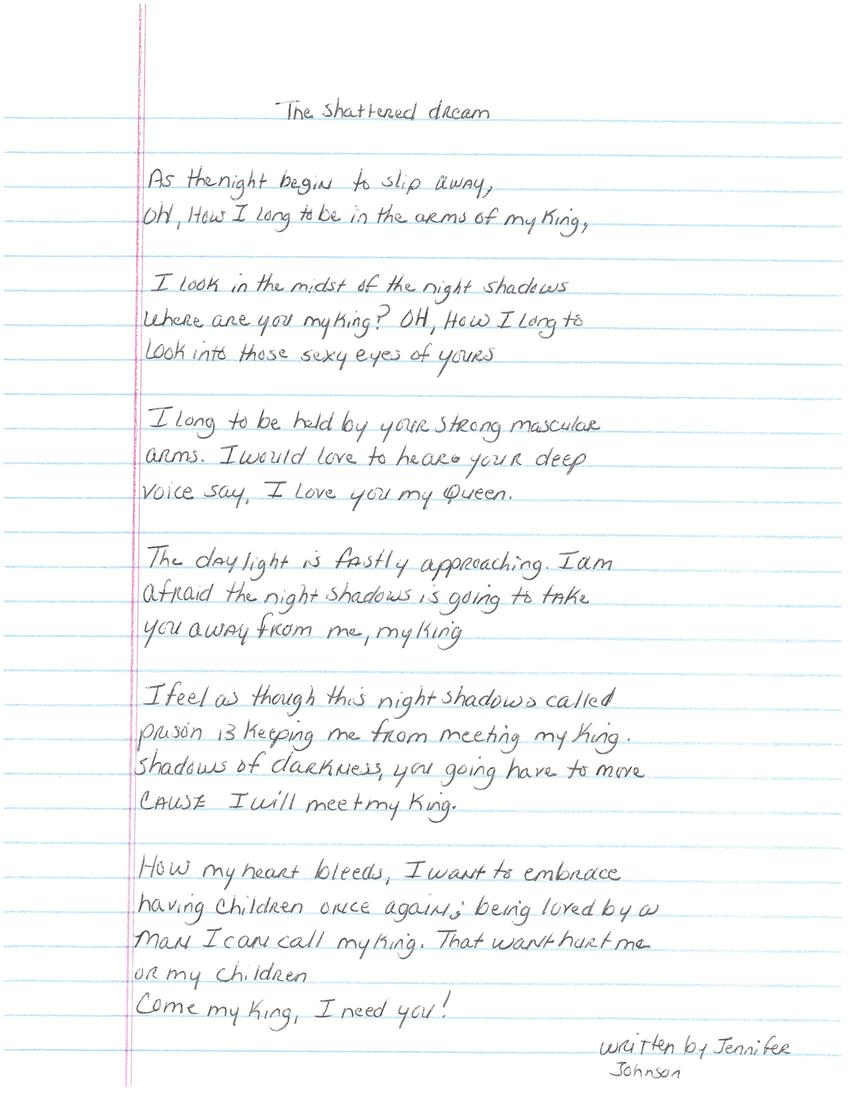 The shattered dream
As the night begin to slip away,
OH, How I long to be in the arms of my King,
I look in the midst of the night shadows
Where are you my King? OH, How I long to
Look into those sexy eyes of yours
I long to be held by your strong mascular
arms. I would love to hear your deep
voice say, I Love you my Queen.
The daylight is fastly approaching. I am
afraid the night shadows is going to take
you away from me, my King
I feel as though this night shadows called
prison is Keeping me from meeting my King.
Shadows of darkness, you going have to move
CAUSE I will meet my King.
How my heart bleeds, I want to embrace
having children once again; being loved by a
Man I can call my King. That want hurt me
or my children
Come my King, I need you!
Written by Jennifer
Johnson